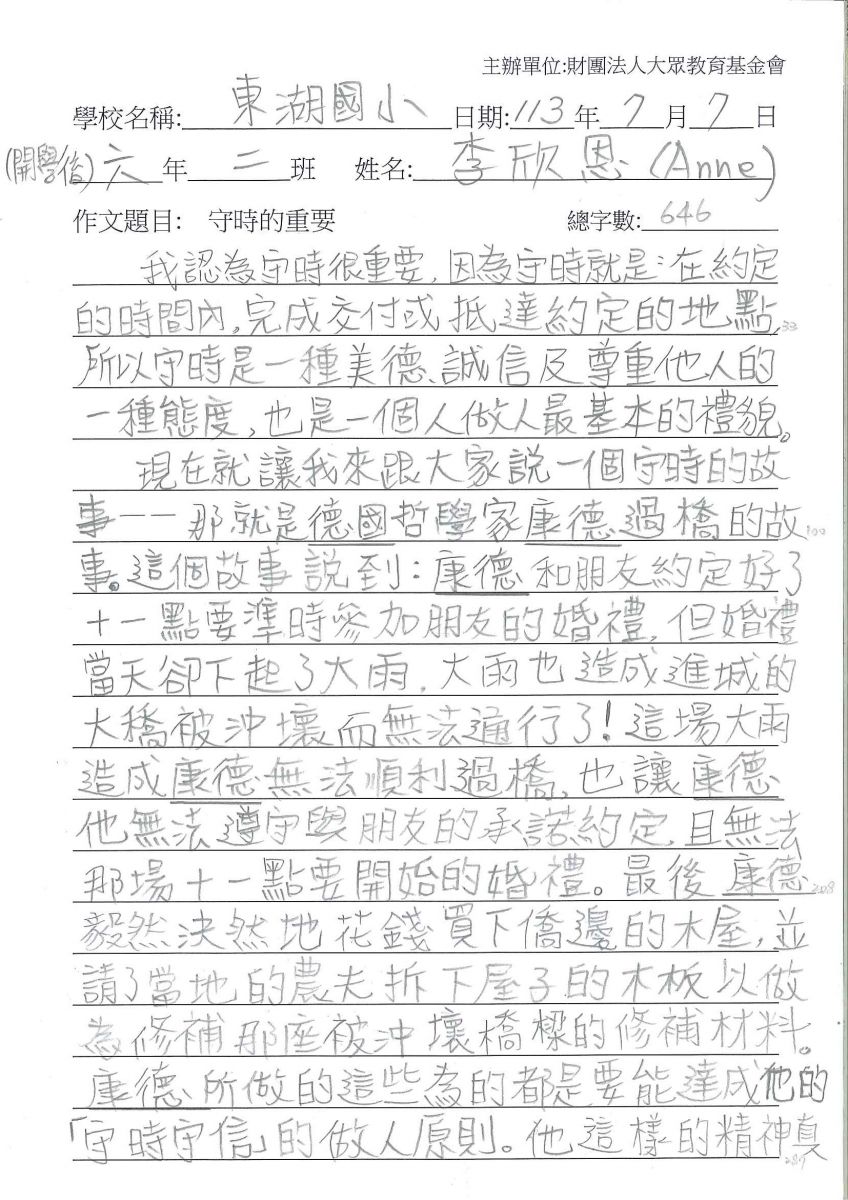 主辦單位:財團法人大眾教育基金會
學校名稱: 東湖國小 日期: 113 年 7 月 7 日
(開學後) 六 年 二 班 姓名: 李欣恩 (Anne)
作文題目: 守時的重要 總字數: 646
我認為守時很重要,因為守時就是:在約定
的時間內,完成交付或抵達約定的地點, 33
所以守時是一種美德、誠信及尊重他人的
一種態度,也是一個人做人最基本的禮貌。
現在就讓我來跟大家說一個守時的故
事——那就是德國哲學家康德過橋的故 100
事。這個故事說到:康德和朋友約定好了
十一點要準時參加朋友的婚禮,但婚禮
當天卻下起了大雨,大雨也造成進城的
大橋被沖壞而無法通行了!這場大雨
造成康德無法順利過橋,也讓康德
他無法遵守與朋友的承諾約定,且無法
那場十一點要開始的婚禮。最後康德 208
毅然決然地花錢買下僑邊的木屋,並
請了當地的農夫拆下屋子的木板以做
為修補那座被沖壞橋樑的修補材料。
康德所做的這些為的都是要能達成他的
「守時守信」的做人原則。他這樣的精神真
287